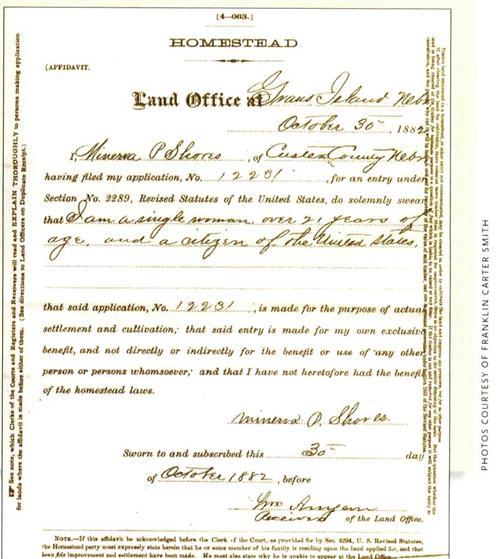 [4—063.]
HOMESTEAD
[AFFIDAVIT.
Land Office at Grand Island Nebr
October 30, 1882
I, Minerva P. Shores, of Custer County Nebr
having filed my application, No. 12231, for an entry under
Section No. 2289, Revised Statutes of the United States, do solemnly swear
that I am a single woman over 21 years of
age, and a citizen of the United States,
that said application, No. 12231, is made for the purpose of actual
settlement and cultivation; that said entry is made for my own exclusive
benefit, and not directly or indirectly for the benefit or use of any other
person or persons whomsoever; and that I have not heretofore had the benefit
of the homestead laws.
Minerva P. Shores
Sworn to and subscribed this 30 day
of October 1882, before
Receiver of the Land Office.
NOTE.—If this affidavit be acknowledged before the Clerk of the Court, as provided for by Sec. 2294, U. S. Revised Statutes,
the Homestead party must expressly state herein that he or some member of his family is residing upon the land applied for, and that
bona fide improvement and settlement have been made. He must also state why he is unable to appear at the Land Office.
See note, which Clerks of the Courts and Registers and Receivers will read and EXPLAIN THOROUGHLY to persons making application
for lands where the affidavit is made before either of them. (See directions to Land Officers on Duplicate Receipt.)
PHOTOS COURTESY OF FRANKLIN CARTER SMITH